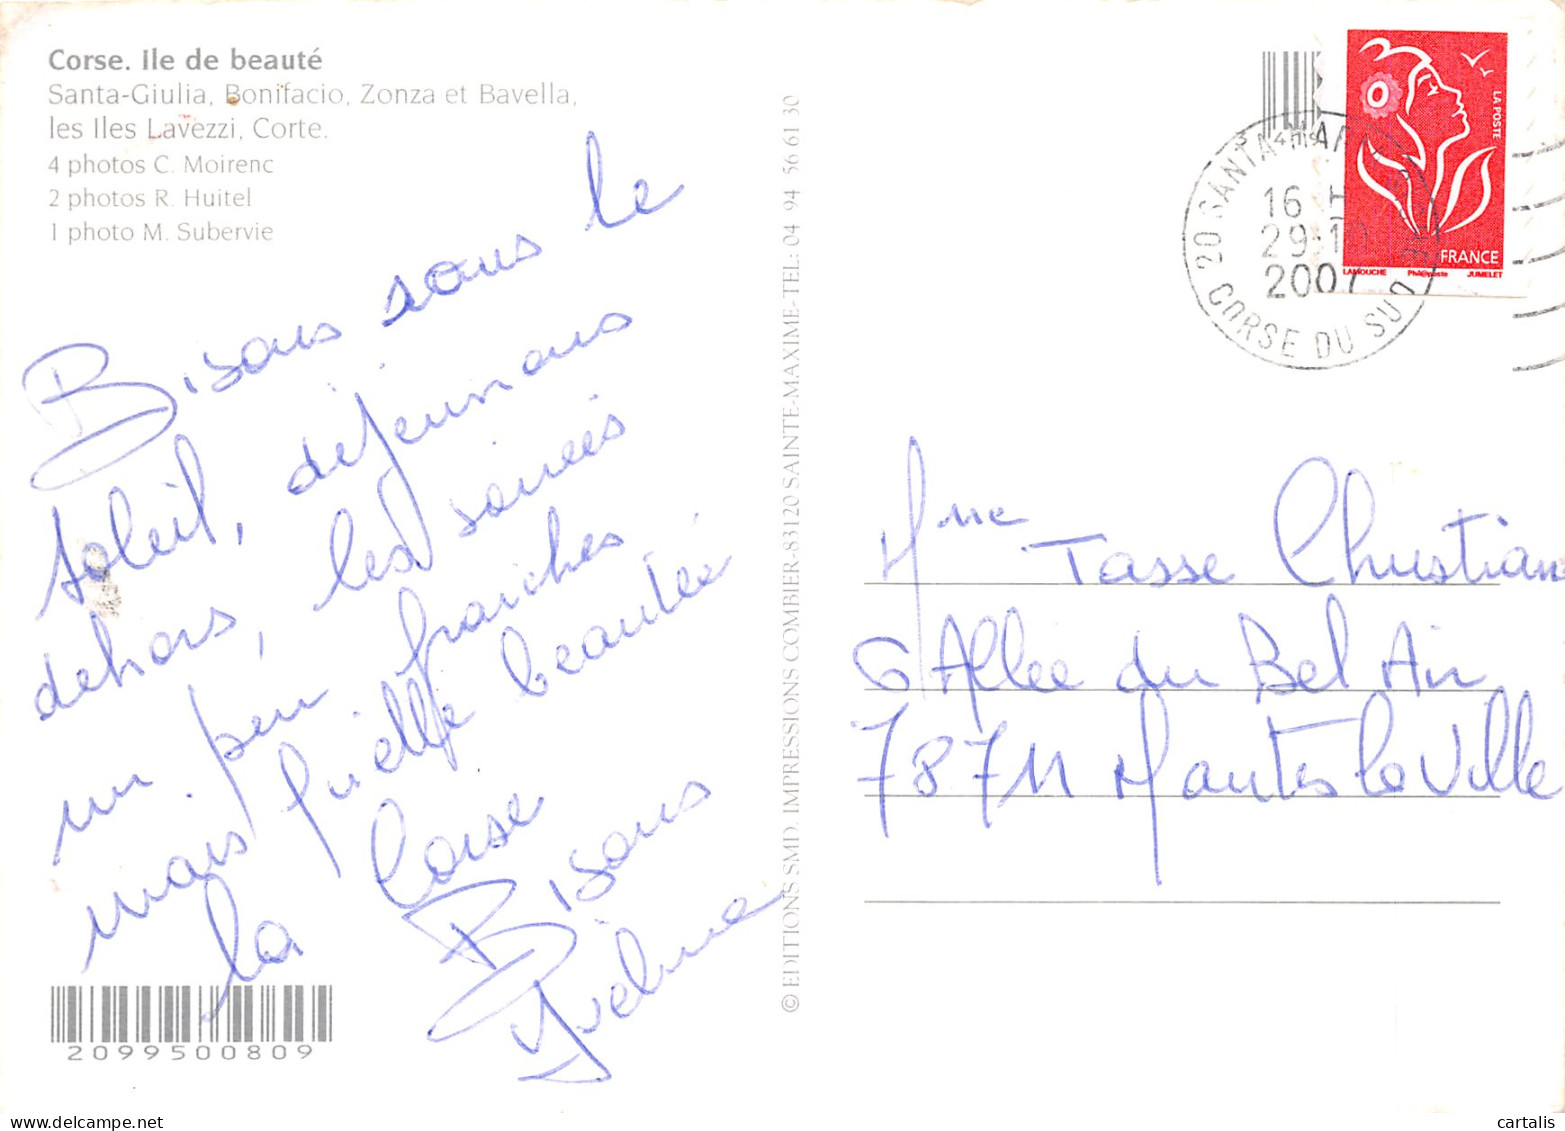 Corse. Ile de beauté
Santa-Giulia, Bonifacio, Zonza et Bavella,
les Iles Lavezzi, Corte.
4 photos C. Moirenc
2 photos R. Huitel
1 photo M. Subervie
Bisous sous le
soleil, déjeunons
dehors, les soirées
un peu fraiches
mais quelle beautée
la Corse
Bisous
2099500809
© EDITIONS SMD. IMPRESSIONS COMBIER-83120 SAINTE-MAXIME-TEL: 04 94 56 61 30
LA POSTE
FRANCE
LAMOUCHE Phil@poste JUMELET
20 SANTA MAR
16 H
29-10
2007
CORSE DU SUD
Mme Tasse Christian
6 Allee du Bel Air
78711 Mantes la Ville
www.cartalis.com